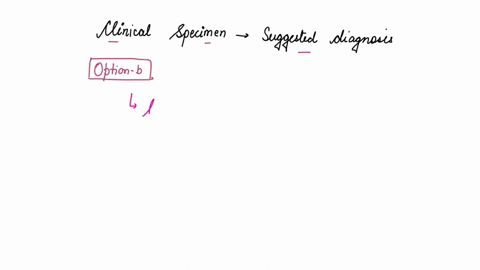 Clinical Specimen → Suggested diagnosis
Option-b
↳